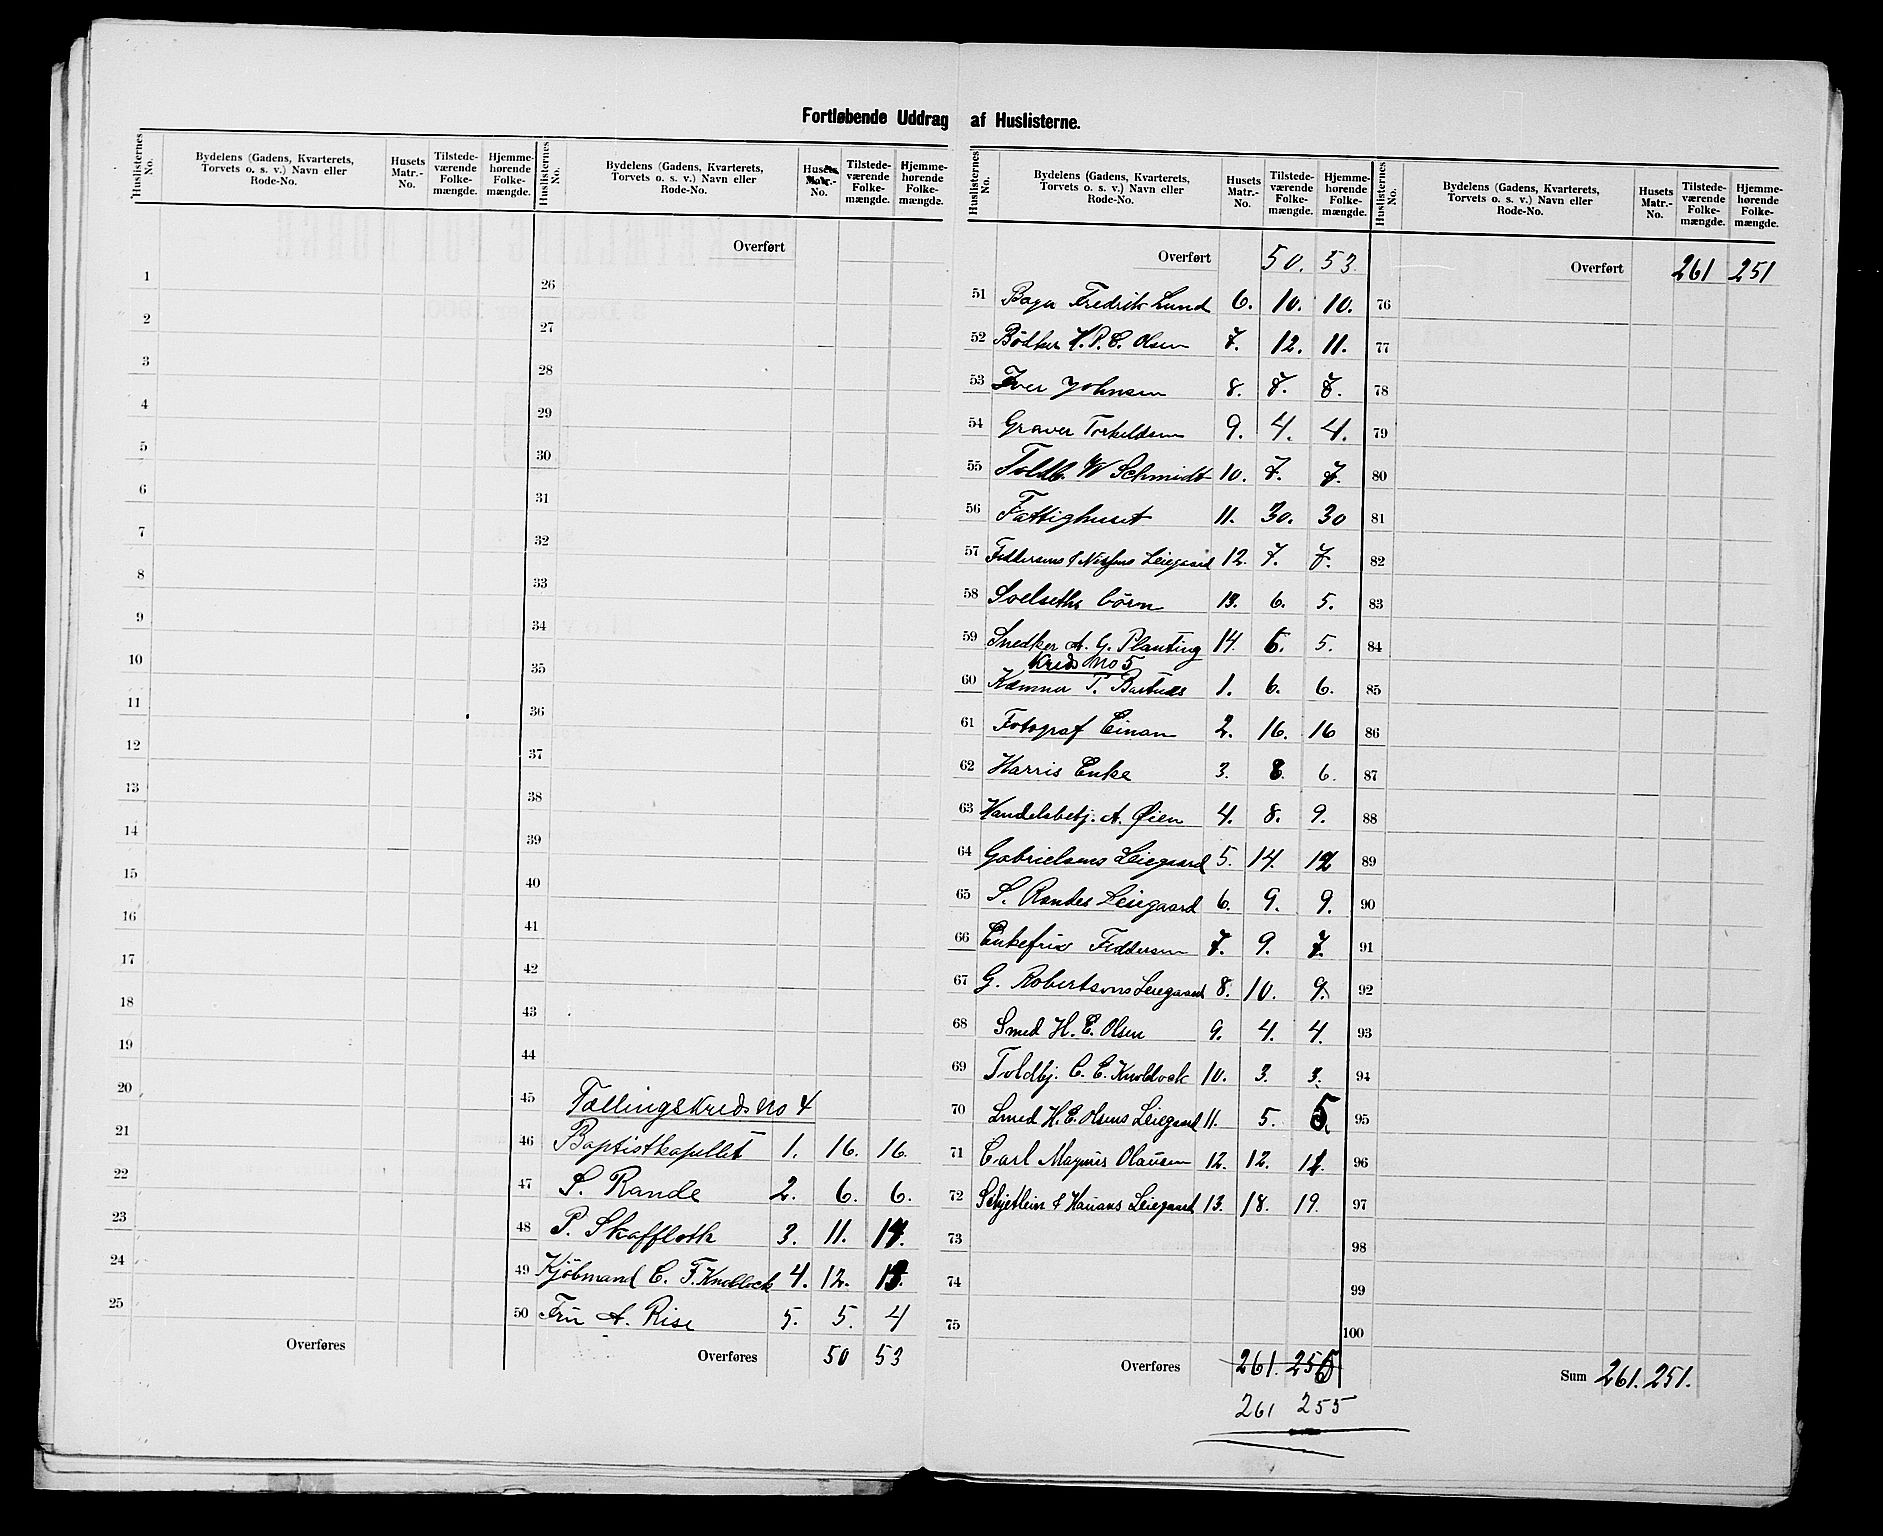 Fortløbende Uddrag af Huslisterne.
Huslisternes No. Bydelens (Gadens, Kvarterets, Torvets o. s. v.) Navn eller Rode-No. Husets Matr.-No. Tilstede-værende Folke-mængde. Hjemme-hørende Folke-mængde.
1
2
3
4
5
6
7
8
9
10
11
12
13
14
15
16
17
18
19
20
21
22
23
24
25
Overføres
Huslisternes No. Bydelens (Gadens, Kvarterets, Torvets o. s. v.) Navn eller Rode-No. Husets Matr.-No. Tilstede-værende Folke-mængde. Hjemme-hørende Folke-mængde.
Overført
26
27
28
29
30
31
32
33
34
35
36
37
38
39
40
41
42
43
44
45 Tællingskreds No 4
46 Baptistkapellet 1. 16. 16.
47 S. Rande 2. 6. 6.
48 P. Skaffloth 3. 11. 14.
49 Kjöbmand C. F. Knoblock 4. 12. 13.
50 Frü A. Rise 5. 5. 4
Overføres 50 53
Huslisternes No. Bydelens (Gadens, Kvarterets, Torvets o. s. v.) Navn eller Rode-No. Husets Matr.-No. Tilstede-værende Folke-mængde. Hjemme-hørende Folke-mængde.
Overført 50. 53.
51 Fredrik Lund 6. 10. 10.
52 Bödker H. P. E. Olsen 7. 12. 11.
53 Iver Johnsen 8. 7. 7.
54 Graver Torkeldsen 9. 4. 4.
55 Toldb. W Schmidt 10. 7. 7.
56 Fattighuset 11. 30. 30
57 Feddersens & Nissens Leiegaard 12. 7. 7.
58 Soelseths börn 13. 6. 5.
59 Snedker A. G. Planting 14. 6. 5.
Kreds No 5
60 Kæmner P. 1. 6. 6.
61 Fotograf Einan 2. 16. 16
62 Harris Enke 3. 8. 6.
63 Handelsbetj. A. Øien 4. 8. 9.
64 Gabrielsens Leiegaard 5. 14. 12
65 S. Randes Leiegaard 6. 9. 9.
66 Enkefrü Feddersen 7. 9. 7.
67 G. Robertsons Leiegaard 8. 10. 9.
68 Smed H. E. Olsen 9. 4. 4.
69 Toldbj. C. E. Knoblock 10. 3. 3.
70 Smed H. E. Olsens Leiegaard 11. 5. 5.
71 Carl Magnüs Olaüsen 12. 12. 12.
72 Schjetlein & Haüans Leiegaard 13. 18. 19.
73
74
75
Overføres 261. 255
261 255
Huslisternes No. Bydelens (Gadens, Kvarterets, Torvets o. s. v.) Navn eller Rode-No. Husets Matr.-No. Tilstede-værende Folke-mængde. Hjemme-hørende Folke-mængde.
Overført 261 251
76
77
78
79
80
81
82
83
84
85
86
87
88
89
90
91
92
93
94
95
96
97
98
99
100
Sum 261. 251.